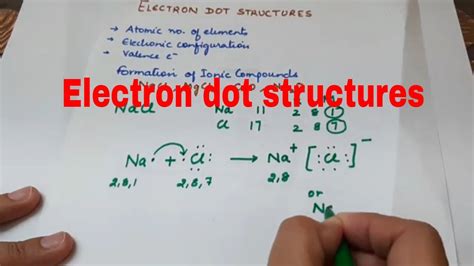 ELECTRON DOT STRUCTURES
→ Atomic no. of elements
→ Electronic configuration
→ Valence e⁻
Formation of Ionic Compounds
Electron dot structures
NaCl Na 11 2 8 1
Cl 17 2 8 7
Na• + :Cl: → Na⁺ [:Cl:]⁻
2,8,1 2,8,7 2,8
or
Na